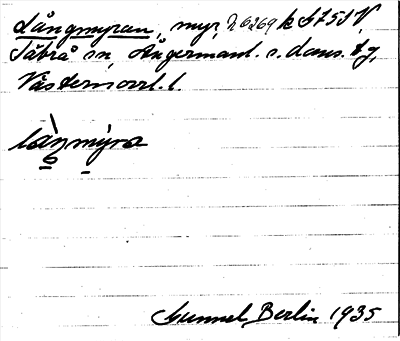 Långmyran, myr, 26269 k 5757 V,
Säbrå sn, Ångermanl. s. doms. t g,
Västernorrl. l.
làŋmỳra
Gunnel Berlin 1935